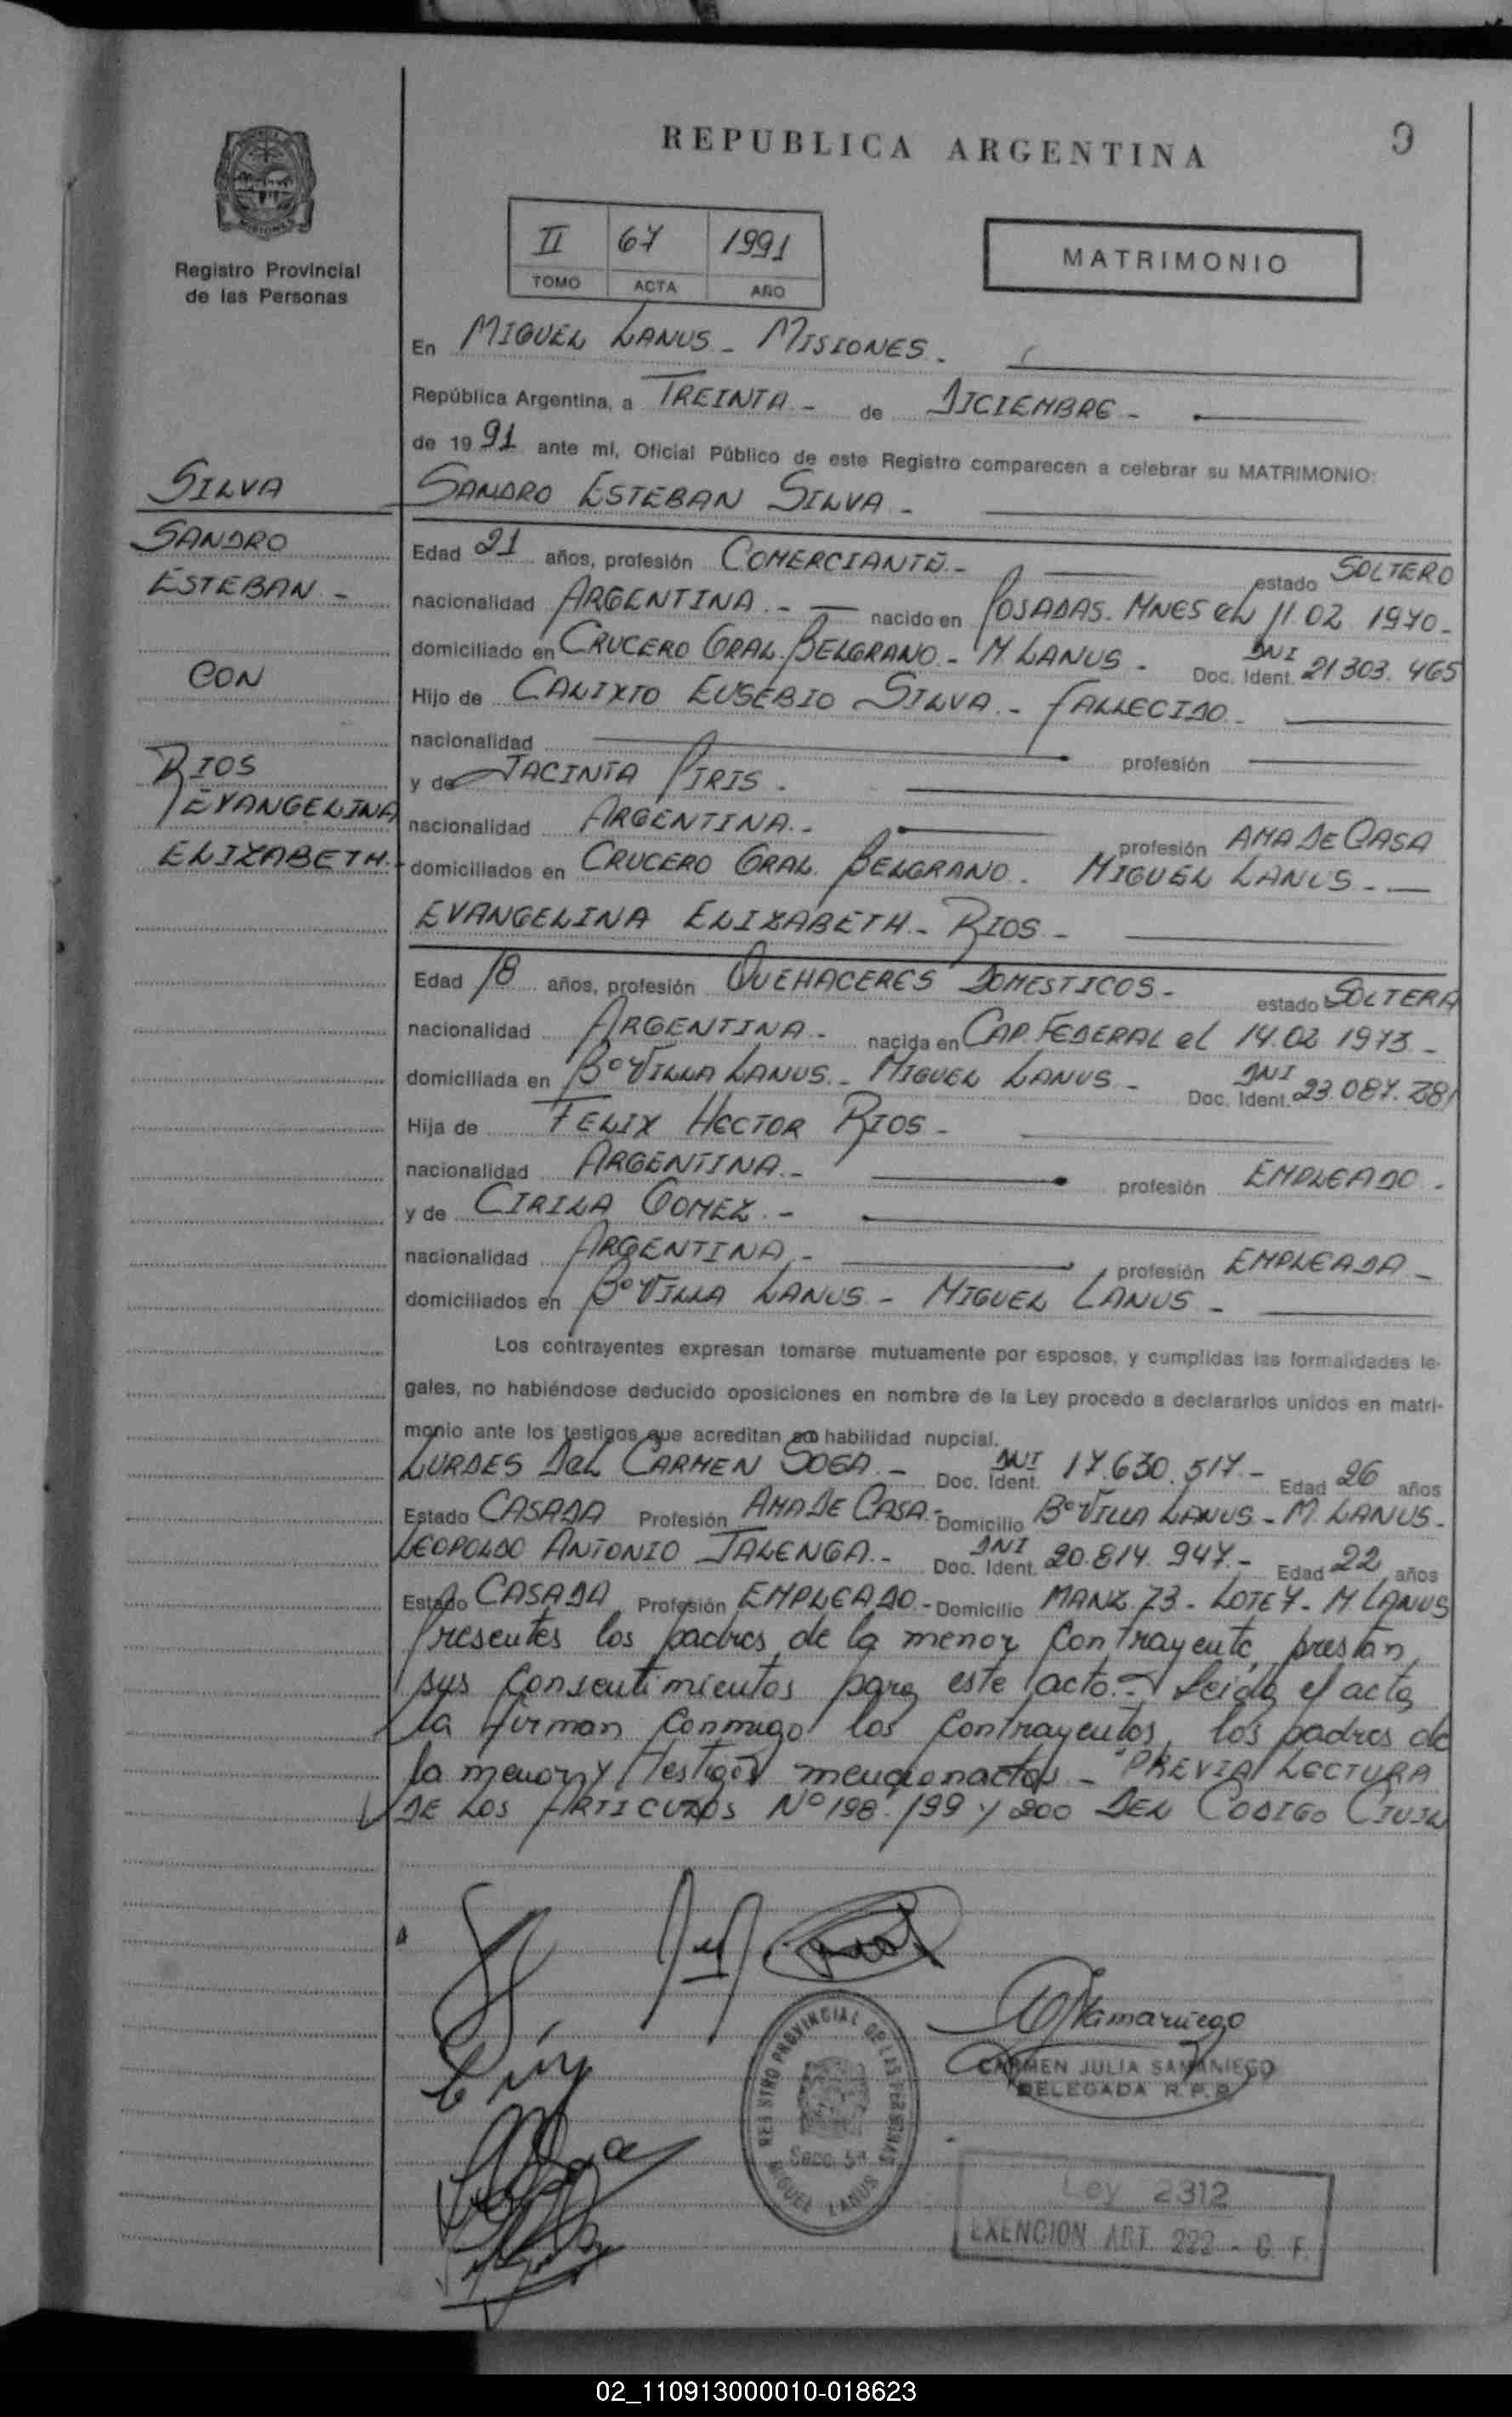 REPUBLICA ARGENTINA
9
MISIONES
Registro Provincial
de las Personas
II 67 1991
TOMO ACTA AÑO
MATRIMONIO
En MIGUEL LANUS - MISIONES -
República Argentina, a TREINTA - de DICIEMBRE -
de 1991 ante mi, Oficial Público de este Registro comparecen a celebrar su MATRIMONIO:
SILVA
SANDRO
ESTEBAN -
CON
RIOS
EVANGELINA
ELIZABETH -
SANDRO ESTEBAN SILVA -
Edad 21 años, profesión COMERCIANTE - estado SOLTERO
nacionalidad ARGENTINA - nacido en POSADAS. MNES el 11.02 1970 -
domiciliado en CRUCERO GRAL. BELGRANO - M LANUS - Doc. Ident. DNI 21.303.465
Hijo de CALIXTO EUSEBIO SILVA - FALLECIDO -
nacionalidad profesión
y de JACINTA PIRIS -
nacionalidad ARGENTINA - profesión AMA DE CASA
domiciliados en CRUCERO GRAL. BELGRANO - MIGUEL LANUS -
EVANGELINA ELIZABETH - RIOS -
Edad 18 años, profesión QUEHACERES DOMESTICOS - estado SOLTERA
nacionalidad ARGENTINA - nacida en CAP. FEDERAL el 14.02 1973 -
domiciliada en Bº VILLA LANUS - MIGUEL LANUS - Doc. Ident. DNI 23.087.
Hija de FELIX HECTOR RIOS -
nacionalidad ARGENTINA - profesión EMPLEADO -
y de CIRILA GOMEZ -
nacionalidad ARGENTINA - profesión EMPLEADA -
domiciliados en Bº VILLA LANUS - MIGUEL LANUS -
Los contrayentes expresan tomarse mutuamente por esposos, y cumplidas las formalidades le-
gales, no habiéndose deducido oposiciones en nombre de la Ley procedo a declararlos unidos en matri-
monio ante los testigos que acreditan habilidad nupcial.
LURDES DEL CARMEN SOSA - Doc. Ident. DNI 17.630.517 - Edad 26 años
Estado CASADA Profesión AMA DE CASA - Domicilio Bº VILLA LANUS - M. LANUS -
LEOPOLDO ANTONIO JALENGA - Doc. Ident. DNI 20.814.947 - Edad 22 años
Estado CASADA Profesión EMPLEADO - Domicilio MANZ. 73 - LOTE 7 - M LANUS
Presentes los padres de la menor contrayente, prestan
sus consentimientos para este acto - Leida el acta
la firman conmigo los contrayentes, los padres de
la menor y testigos mencionados - "PREVIA LECTURA
DE LOS ARTICULOS Nº 198. 199 y 200 DEL CODIGO CIVIL
Samaniego
CARMEN JULIA SAMANIEGO
DELEGADA R.P.P.
REGISTRO PROVINCIAL DE LAS PERSONAS
Secc. 5ª
MIGUEL LANUS
Ley 2312
EXENCION ART. 222 - C. F.
02_110913000010-018623